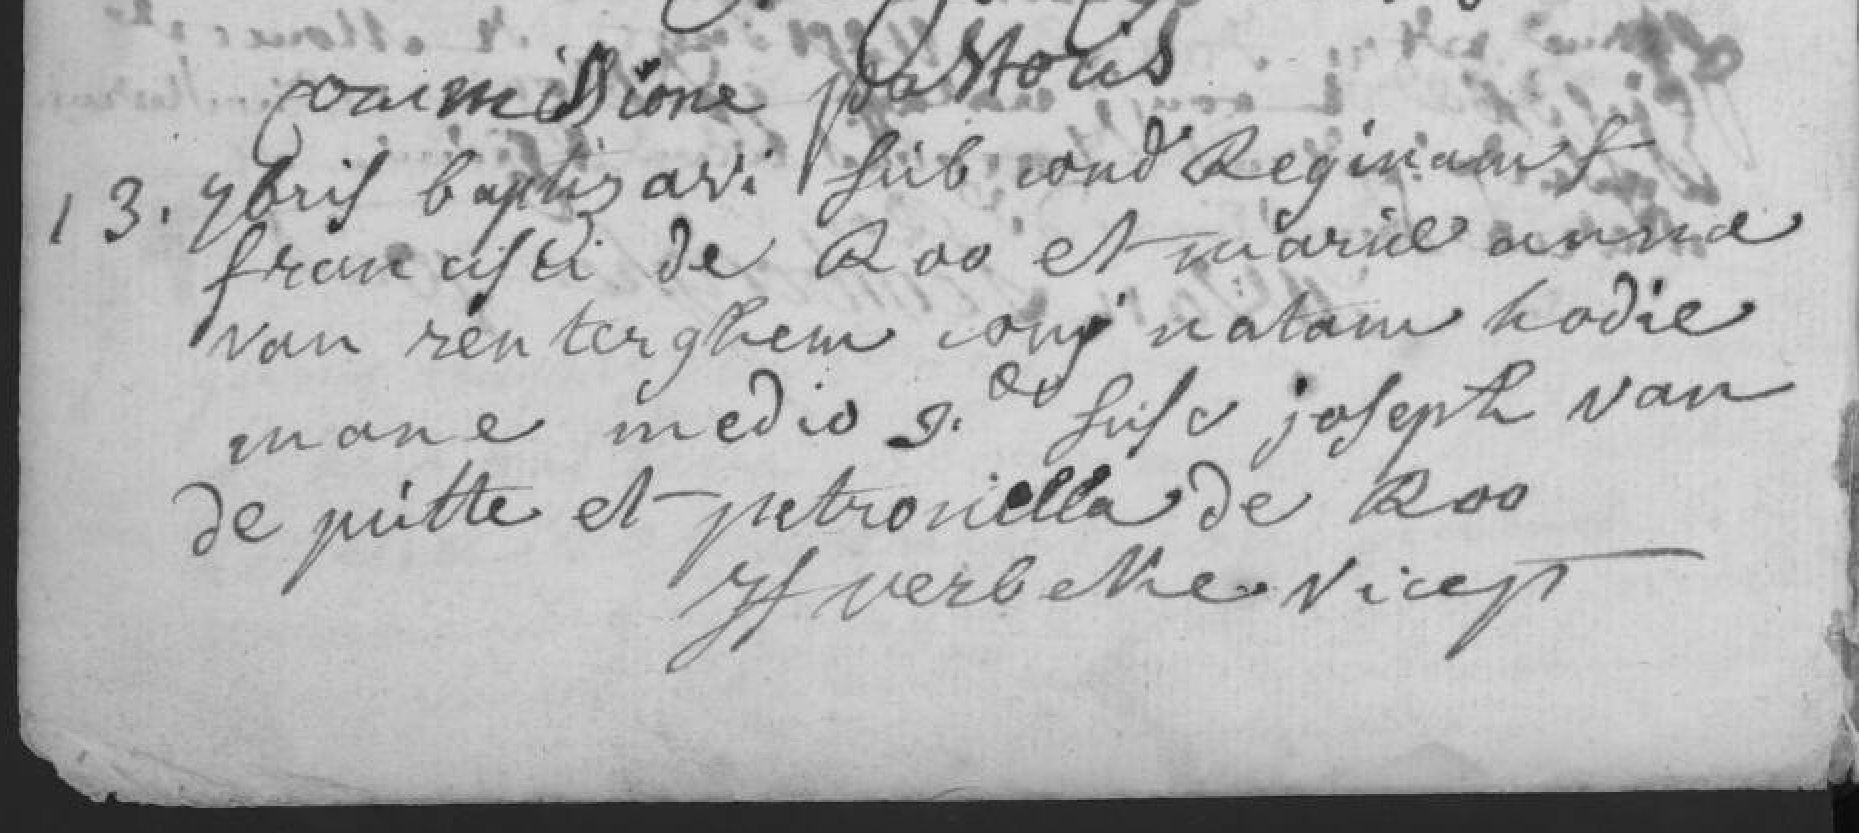 commissione pastoris
13. 7bris baptizavi sub cond Reginam f
francisci de Roo et mariæ annæ
van renterghem conj natam hodie
mane medio 9.æ susc joseph van
de pútte et petronilla de Roo
verbeKe vicep